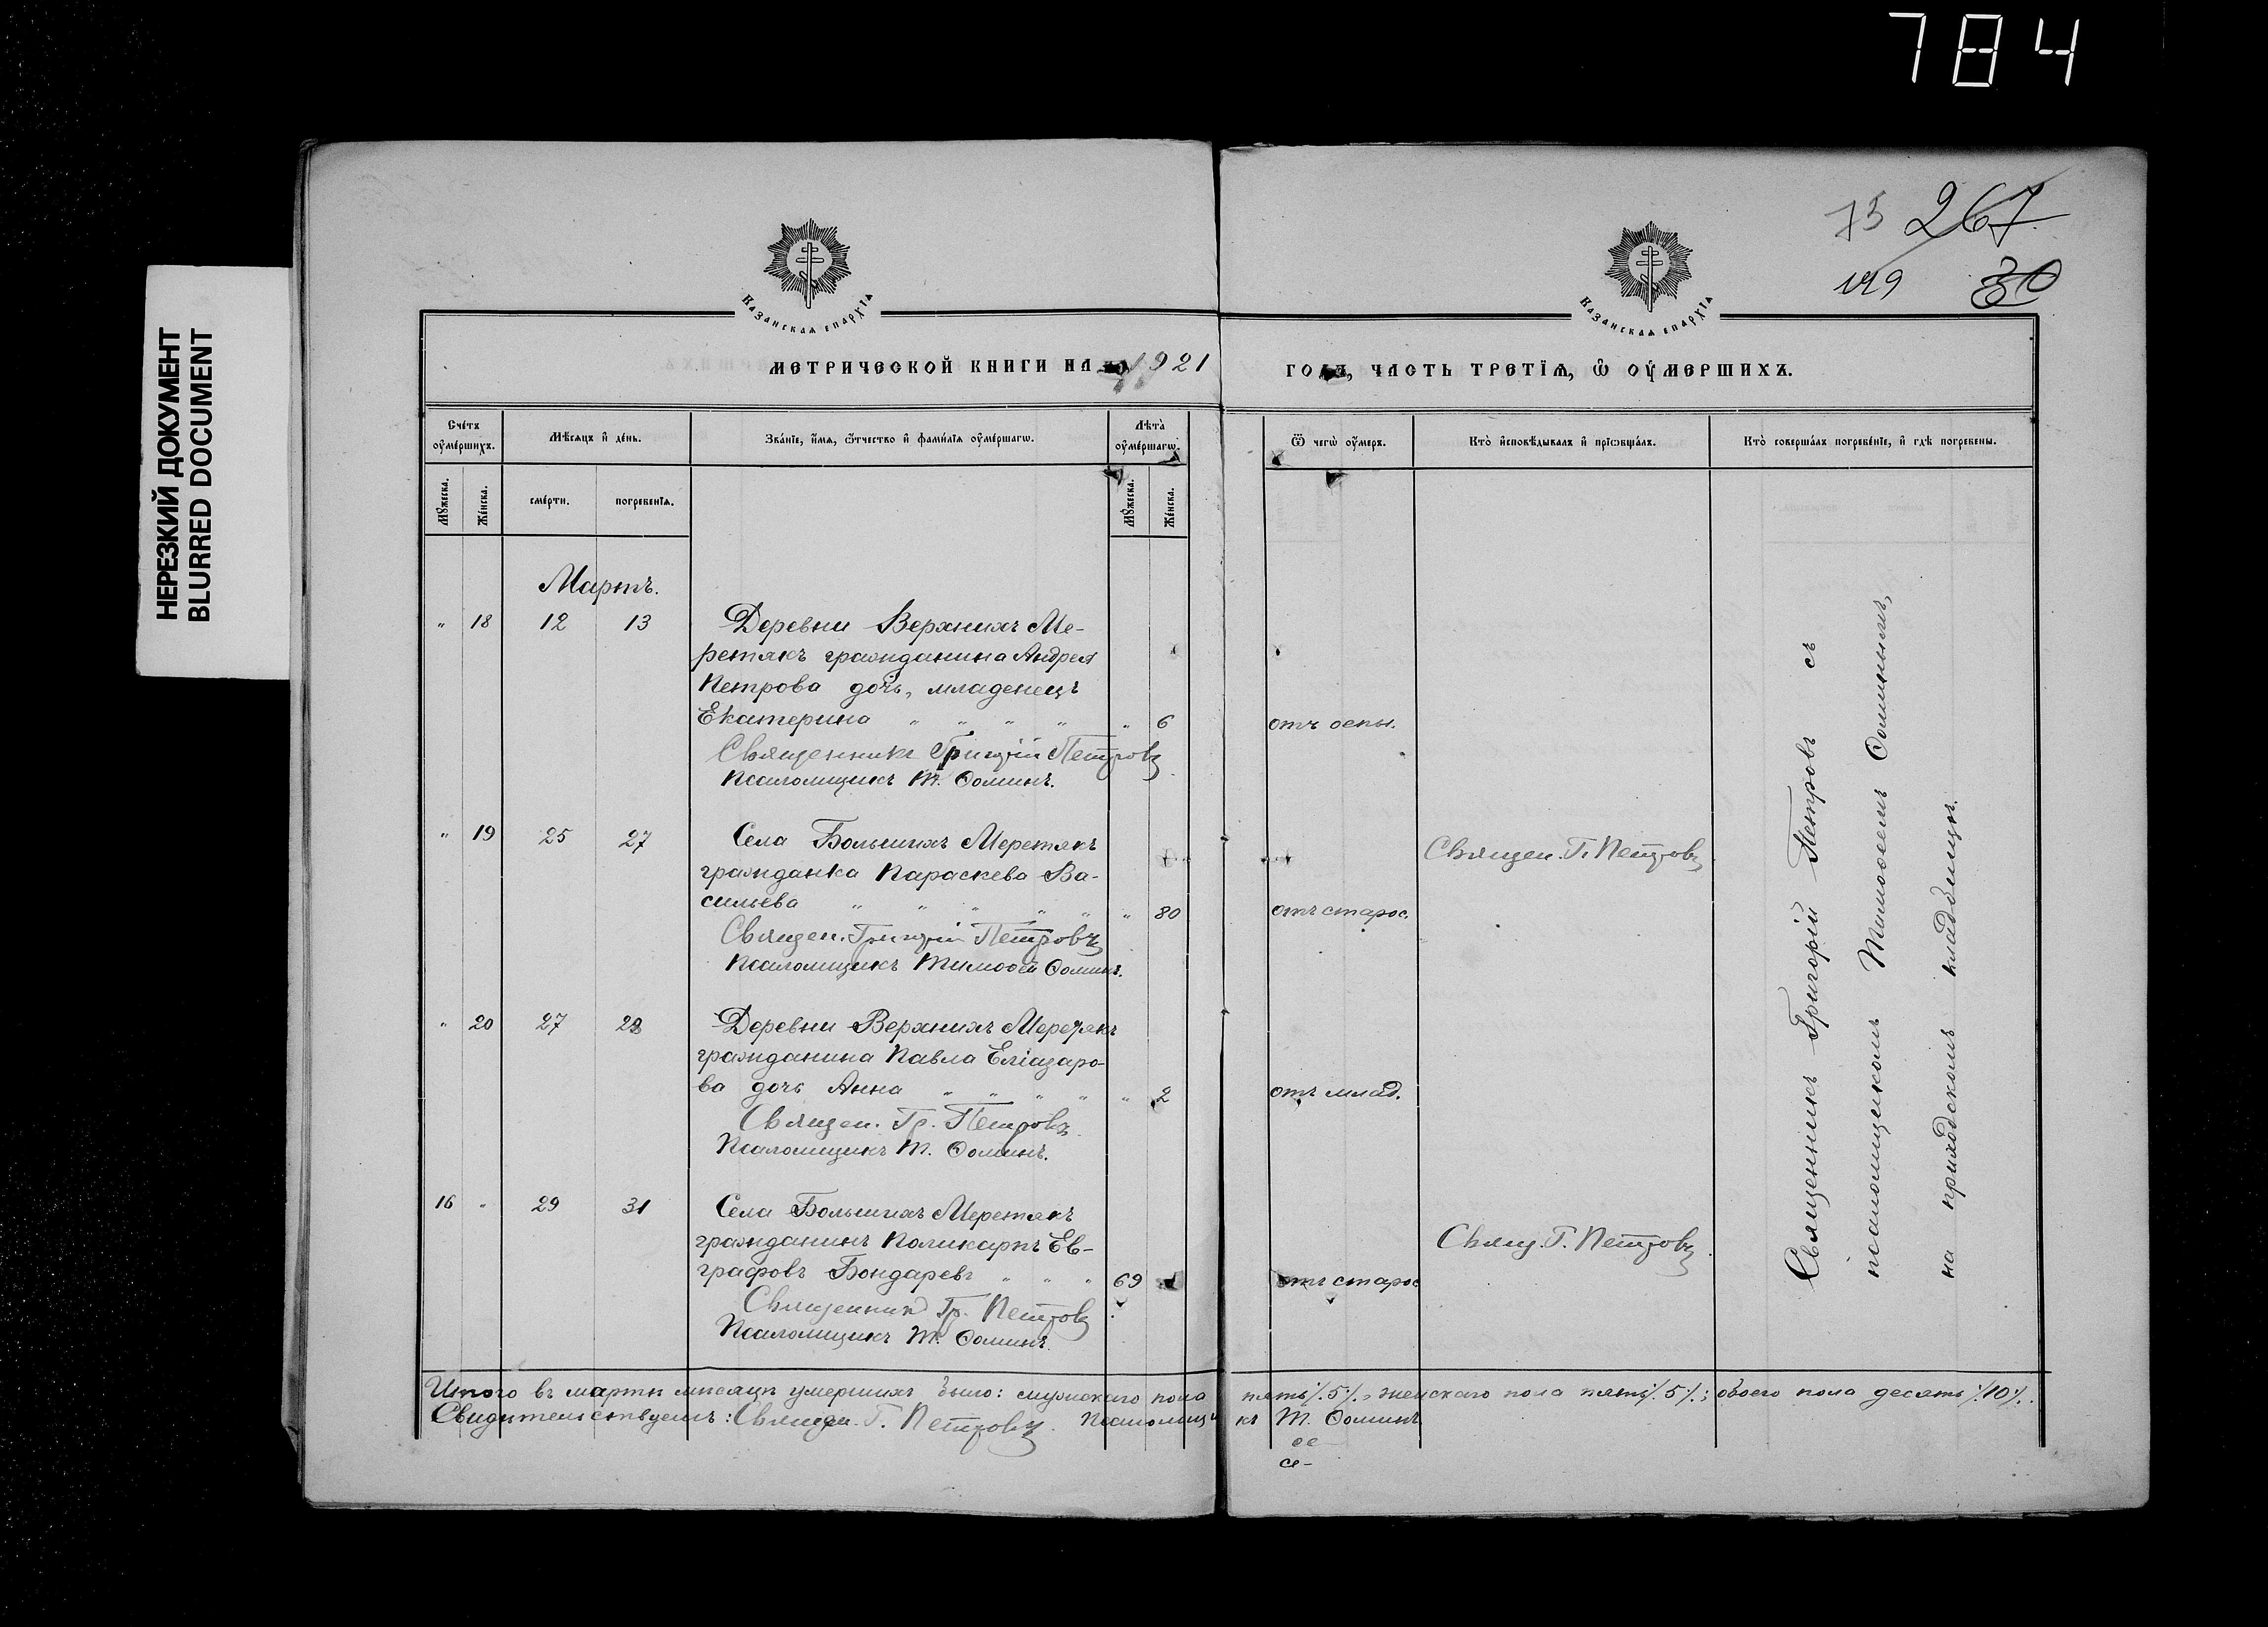 784
НЕРЕЗКИЙ ДОКУМЕНТ
BLURRED DOCUMENT
75 267
149 30
КАЗАНСКАЯ ЕПАРХІЯ
КАЗАНСКАЯ ЕПАРХІЯ
МЕТРИЧЕСКОЙ КНИГИ НА 1921 ГОДЪ, ЧАСТЬ ТРЕТІѦ, Ѿ ОУМЕРШИХЪ.
Счетъ оумершихъ.
Мѣсяцъ и день.
Званіе, имя, отчество и фамилія оумершагѡ.
Лѣта оумершагѡ.
Ѿ чегѡ оумеръ.
Кто исповѣдывалъ и пріѡбщалъ.
Кто совершалъ погребеніе, и гдѣ погребены.
Мужеска.
Женска.
смерти.
погребенія.
Мужеска.
Женска.
Мартъ.
" 18 12 13 Деревни Верхнихъ Ме-
ретякъ гражданина Андрея
Петрова дочь, младенецъ
Екатерина " " " " " 6 отъ оспы.
Священникъ Григорій Петровъ
Псаломщикъ Т. Ѳоминъ.
" 19 25 27 Села Большихъ Меретякъ Священ. Г. Петровъ
гражданка Параскева Ва-
сильева " " " " " " 80 отъ старос.
Священ. Григорій Петровъ
Псаломщикъ Тимоѳей Ѳоминъ.
" 20 27 28 Деревни Верхнихъ Меретякъ
гражданина Павла Еліазаро-
ва дочь Анна " " " " " 2 отъ млад.
Священ. Гр. Петровъ
Псаломщикъ Т. Ѳоминъ.
16 " 29 31 Села Большихъ Меретякъ
гражданинъ Поликарпъ Ев- Свящ. Г. Петровъ
графовъ Бондаревъ " " " 69 отъ старос
Священникъ Гр. Петровъ
Псаломщикъ Т. Ѳоминъ.
Священникъ Григорій Петровъ съ
псаломщикомъ Тимоѳеемъ Ѳоминымъ,
на приходскомъ кладбищѣ.
Итого въ мартѣ мѣсяцѣ умершихъ было: мужскаго пола пять /.5/., женскаго пола пять /.5/.; обоего пола десять /.10/.
Свидѣтельствуемъ: Священ. Г. Петровъ. Псаломщикъ Т. Ѳоминъ